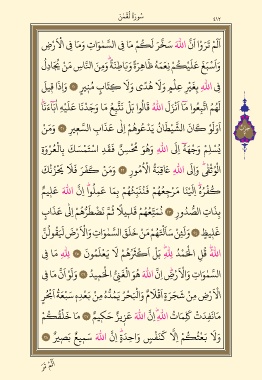 سُورَةُ لُقْمٰنَ
٤١٢
اَلَمْ تَرَوْا اَنَّ اللّٰهَ سَخَّرَ لَكُمْ مَا فِى السَّمٰوَاتِ وَمَا فِى الْاَرْضِ
وَاَسْبَغَ عَلَيْكُمْ نِعَمَهُ ظَاهِرَةً وَبَاطِنَةً وَمِنَ النَّاسِ مَنْ يُجَادِلُ
فِى اللّٰهِ بِغَيْرِ عِلْمٍ وَلَا هُدًى وَلَا كِتَابٍ مُنِيرٍ ٢٠ وَاِذَا قِيلَ
لَهُمُ اتَّبِعُوا مَا اَنْزَلَ اللّٰهُ قَالُوا بَلْ نَتَّبِعُ مَا وَجَدْنَا عَلَيْهِ اٰبَاءَنَا
اَوَلَوْ كَانَ الشَّيْطَانُ يَدْعُوهُمْ اِلٰى عَذَابِ السَّعِيرِ ٢١ وَمَنْ
يُسْلِمْ وَجْهَهُ اِلَى اللّٰهِ وَهُوَ مُحْسِنٌ فَقَدِ اسْتَمْسَكَ بِالْعُرْوَةِ
الْوُثْقٰى وَاِلَى اللّٰهِ عَاقِبَةُ الْاُمُورِ ٢٢ وَمَنْ كَفَرَ فَلَا يَحْزُنْكَ
كُفْرُهُ اِلَيْنَا مَرْجِعُهُمْ فَنُنَبِّئُهُمْ بِمَا عَمِلُوا اِنَّ اللّٰهَ عَلِيمٌ
بِذَاتِ الصُّدُورِ ٢٣ نُمَتِّعُهُمْ قَلِيلًا ثُمَّ نَضْطَرُّهُمْ اِلٰى عَذَابٍ
غَلِيظٍ ٢٤ وَلَئِنْ سَاَلْتَهُمْ مَنْ خَلَقَ السَّمٰوَاتِ وَالْاَرْضَ لَيَقُولُنَّ
اللّٰهُ قُلِ الْحَمْدُ لِلّٰهِ بَلْ اَكْثَرُهُمْ لَا يَعْلَمُونَ ٢٥ لِلّٰهِ مَا فِى
السَّمٰوَاتِ وَالْاَرْضِ اِنَّ اللّٰهَ هُوَ الْغَنِىُّ الْحَمِيدُ ٢٦ وَلَوْ اَنَّ مَا فِى
الْاَرْضِ مِنْ شَجَرَةٍ اَقْلَامٌ وَالْبَحْرُ يَمُدُّهُ مِنْ بَعْدِهِ سَبْعَةُ اَبْحُرٍ
مَا نَفِدَتْ كَلِمَاتُ اللّٰهِ اِنَّ اللّٰهَ عَزِيزٌ حَكِيمٌ ٢٧ مَا خَلْقُكُمْ
وَلَا بَعْثُكُمْ اِلَّا كَنَفْسٍ وَاحِدَةٍ اِنَّ اللّٰهَ سَمِيعٌ بَصِيرٌ ٢٨
اَلَمْ تَرَ